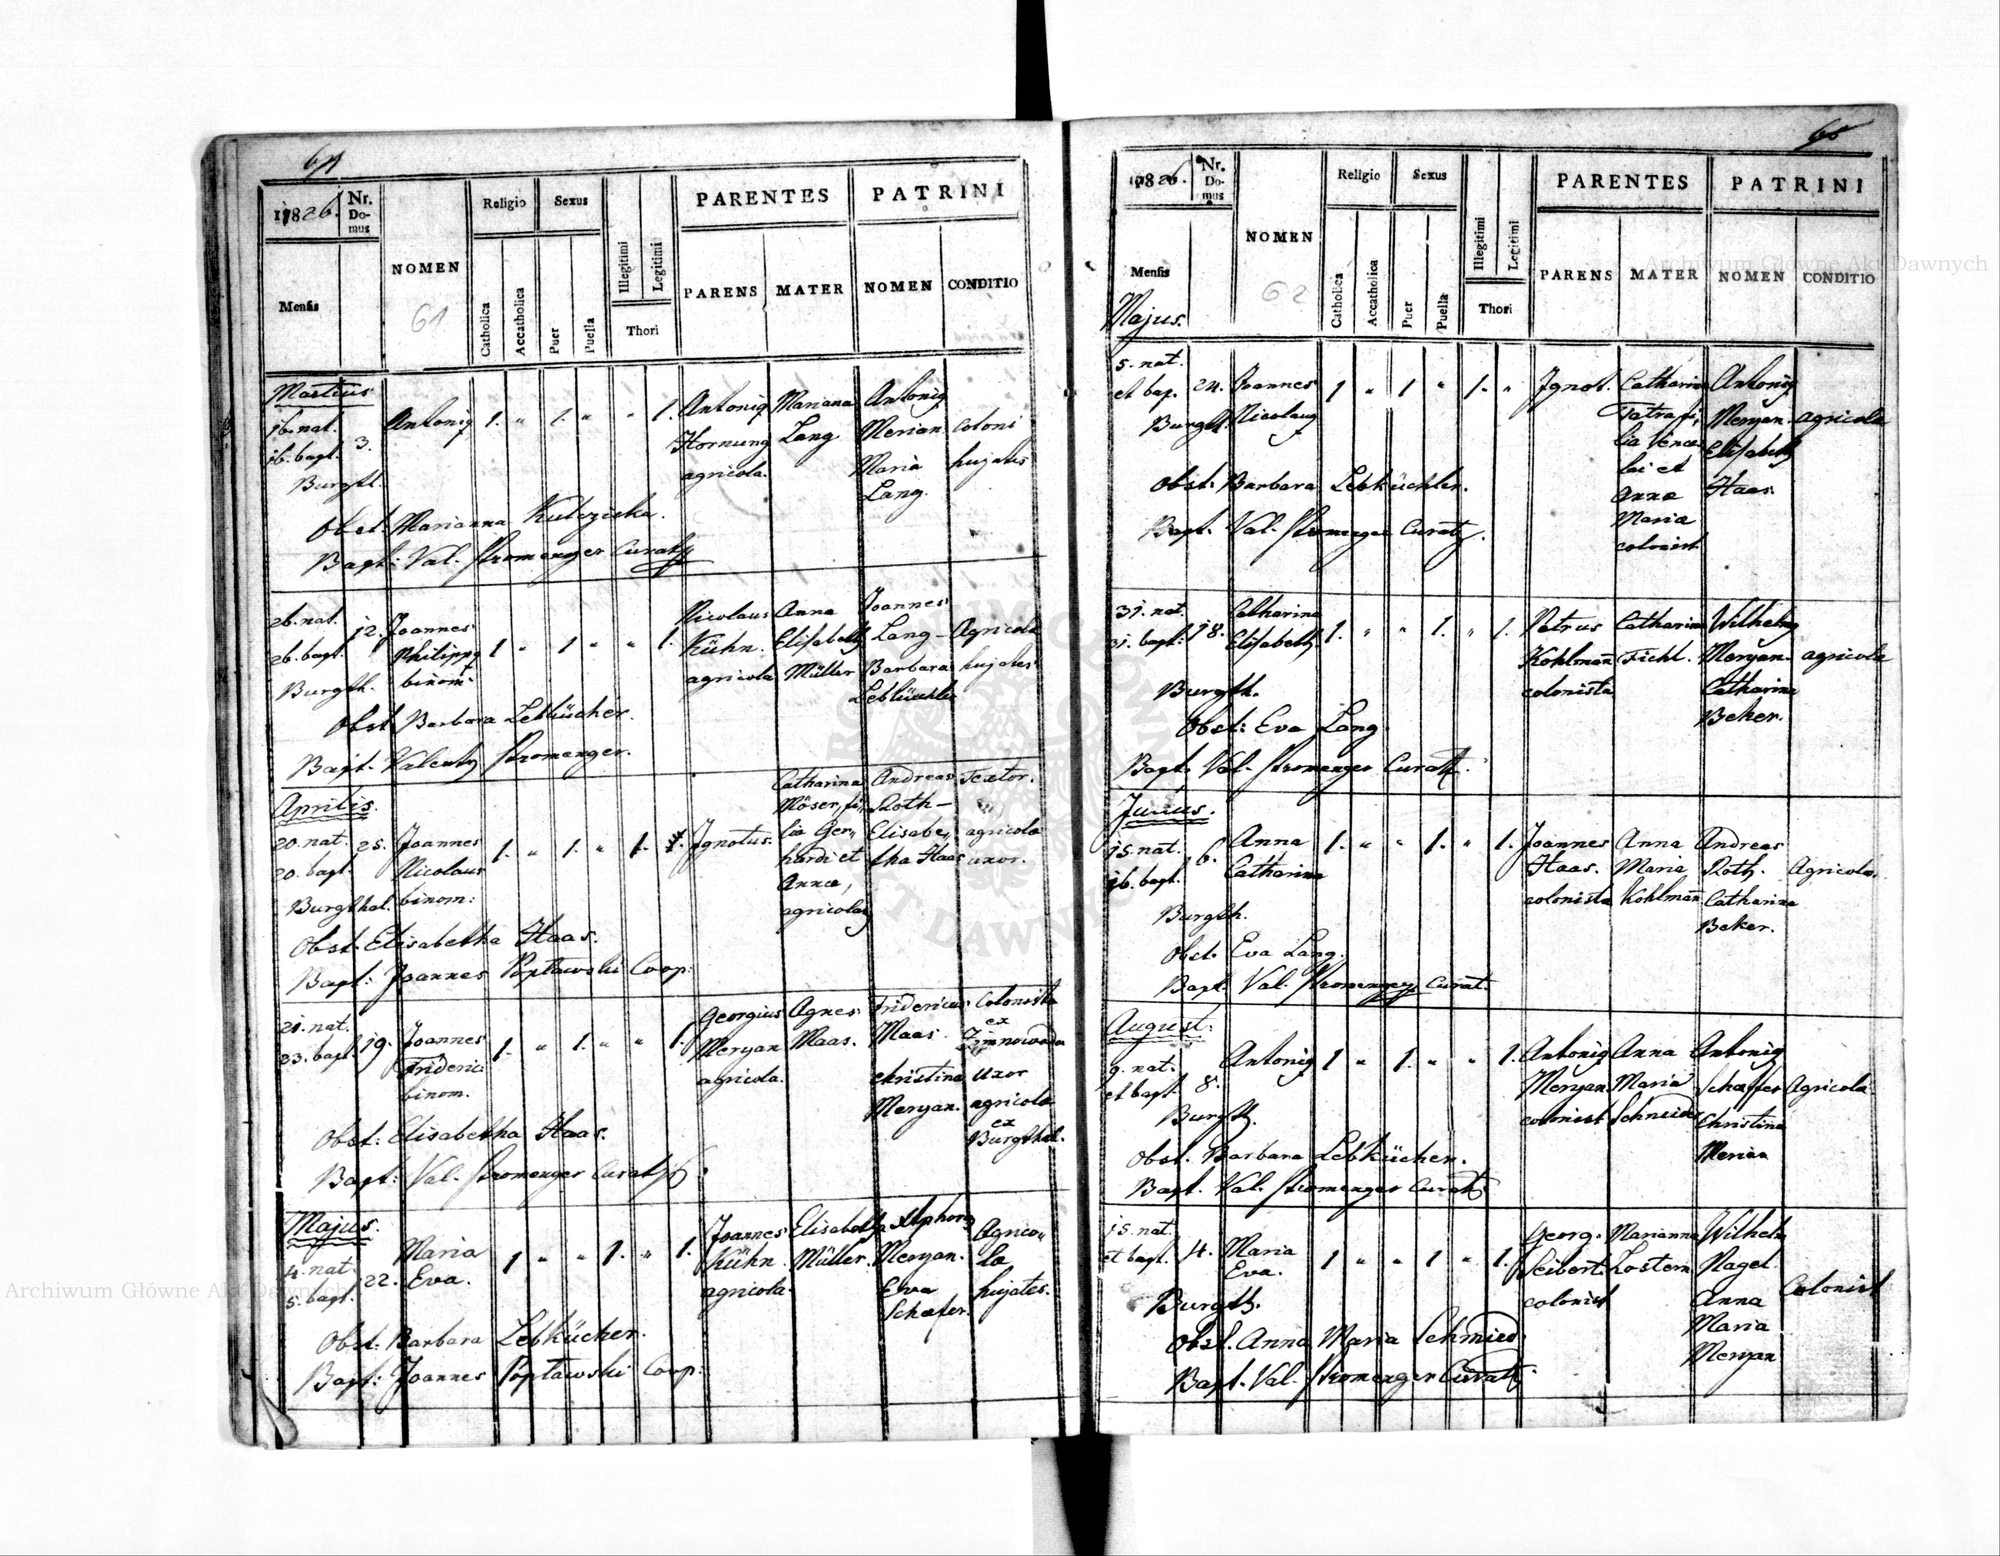 64
1826.
Nr. Domus
NOMEN
Religio
Sexus
PARENTES
PATRINI
Mensis
Catholica
Accatholica
Puer
Puella
Illegitimi
Legitimi
Thori
PARENS
MATER
NOMEN
CONDITIO
61
Martius
16. nat.
16. bapt.
3.
Burgth.
Antonig
1. " 1. " " 1.
Antonig
Hornung
agricola.
Mariana
Lang
Antonig
Merian
Maria
Lang.
coloni
hujates
Obst: Marianna
Bapt: Val. Stromenger Curatg
26. nat.
26. bapt.
12.
Burgth.
Joannes
Philippg
binom.
1 " 1 " " 1.
Nicolaus
Kühn.
agricola
Anna
Elisabeth
Müller
Joannes
Lang –
Barbara
Lebküchler
Agricola
hujates
Obst Barbara Lebkücher.
Bapt. Valentg Stromenger.
Aprilis.
20. nat.
20. bapt.
25.
Burgthal.
Joannes
Nicolaus
binom:
1. " 1. " 1.
Ignotus.
Catharina
Möser, fi„
lia Ger„
hardi et
Annæ,
agricolæ
Andreas
Roth –
Elisabe„
tha Haas
Textor.
agricola
uxor.
Obst. Elisabetha Haas.
Bapt: Joannes Poptawski Coop:
21. nat.
23. bapt.
19.
Joannes
Frideric
binom.
1. " 1. " " 1.
Georgius
Meryan
agricola.
Agnes
Maas.
Fridericus
Maas.
Christina
Meryan.
Colonista
ex
Zimnowoda
uxor
agricola
ex
Burgthal.
Obst: Elisabetha Haas.
Bapt: Val. Stromenger Curatg
Majus.
4. nat.
5. bapt.
22.
Maria
Eva.
1 " " 1. " 1.
Joannes
Kühn
agricola.
Elisabetha
Müller.
Alphons
Meryan.
Eva
Schæfer.
Agrico„
la
hujates.
Obst: Barbara Lebkücher.
Bapt: Joannes Poptawski Coop:
65
1826.
Nr. Domus
NOMEN
Religio
Sexus
PARENTES
PATRINI
Mensis
Catholica
Accatholica
Puer
Puella
Illegitimi
Legitimi
Thori
PARENS
MATER
NOMEN
CONDITIO
62
Majus.
5. nat.
et bap.
24.
Burgth.
Joannes
Nicolaug
1 " 1 " 1. "
Ignot.
Catharina
fi„
lia Vences
lai et
Anna
Maria
colonist.
Antonig
Meryan.
Elisabeth
Haas.
agricola
Obst: Barbara Lebküchler.
Bapt. Val. Stromenger Curatg.
31. nat.
31. bapt.
18.
Burgth.
Catharina
Elisabeth.
1. " " 1. " 1.
Petrus
Kohlmañ
colonista
Catharina
Tichl.
Wilhelmg
Meryan.
Catharina
Beker.
agricola
Obst: Eva Lang.
Bapt. Val. Stromenger Curatg.
Junius.
15. nat.
16. bapt.
6.
Burgth.
Anna
Catharina
1. " " 1. " 1.
Joannes
Haas.
colonista
Anna
Maria
Kohlmañ
Andreas
Roth.
Catharina
Beker.
Agricola.
Obst. Eva Lang.
Bapt. Val. Stromenger Curat.
August:
9. nat.
et bapt
8.
Burgth.
Antonig
1 " 1. " " 1.
Antonig
Meryan
colonist
Anna
Maria
Schneider
Antonig
Schæffer
Christina
Merian
Agricola
Obst. Barbara Lebkücher.
Bapt. Val. Stromenger Curatg
15. nat.
et bapt.
4.
Burgth.
Maria
Eva.
1 " " 1 " 1.
Georg.
Seibert.
colonist
Marianna
Wilhelm
Nagel
Anna
Maria
Meryan
Colonist
Obst. Anna Maria Schmied
Bapt. Val. Stromenger Curatg.
Archiwum Główne Akt Dawnych
Archiwum Główne Akt Dawnych